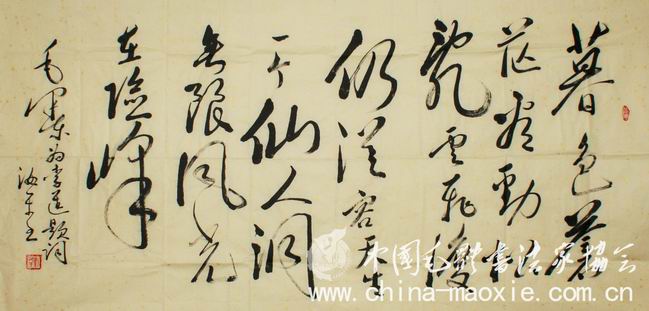 暮色苍
茫看劲松
乱云飞渡
仍从容天生
一个仙人洞
无限风光
在险峰
毛泽东为李进题词
中国毛体书法家协会
www.china-maoxie.com.cn